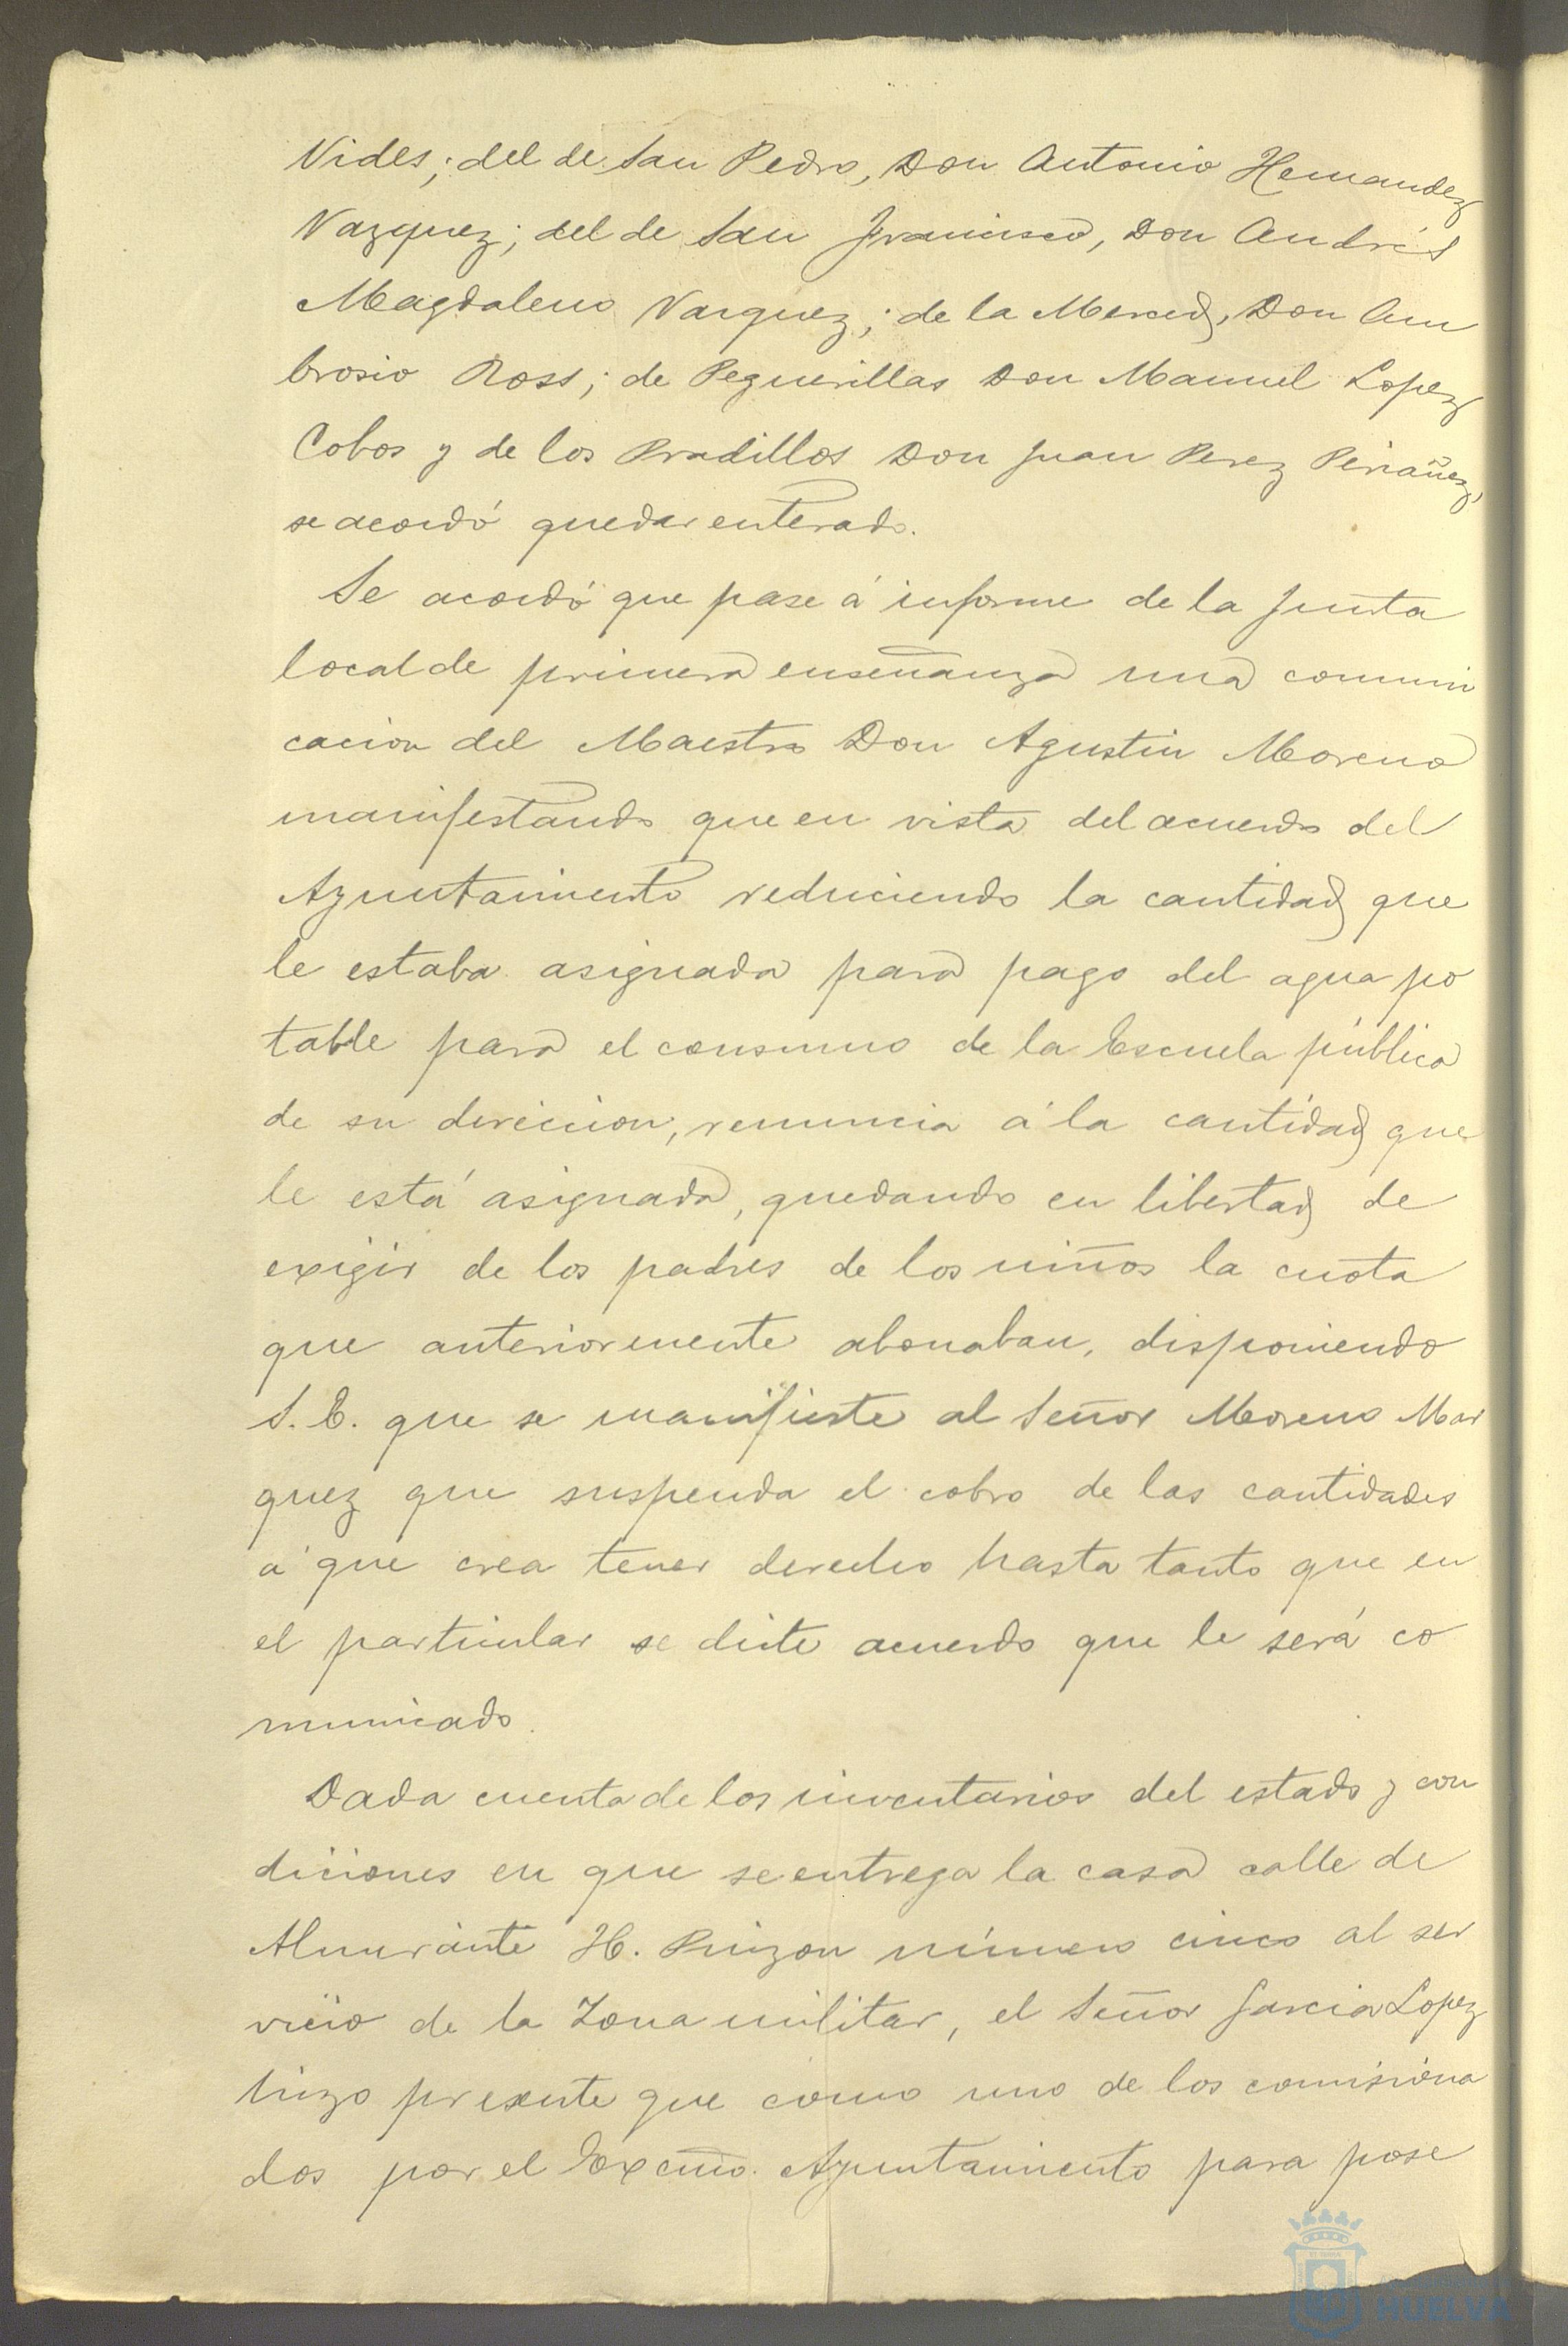 Vides; del de San Pedro, Don Antonio Hernandez
Vazquez; del de San Francisco, Don Andrés
Magdaleno Vazquez; de la Merced, Don Am
brosio Ross; de Peguerillas Don Manuel Lopez
Cobos y de los Pradillos Don Juan Perez Periañez,
se acordó quedar enterado.
Se acordó que pase á informe de la Junta
local de primera enseñanza una comuni
cacion del Maestro Don Agustin Moreno
manifestando que en vista del acuerdo del
Ayuntamiento reduciendo la cantidad que
le estaba asignada para pago del agua po
table para el consumo de la Escuela pública
de su direccion, renuncia á la cantidad que
le está asignada, quedando en libertad de
exigir de los padres de los niños la cuota
que anteriormente abonaban, disponiendo
S. E. que se manifieste al Señor Moreno Mar
quez que suspenda el cobro de las cantidades
á que crea tener derecho hasta tanto que en
el particular se dicte acuerdo que le será co
municado.
Dada cuenta de los inventarios del estado y con
diciones en que se entrega la casa calle de
Almirante H. Pinzon número cinco al ser
vicio de la Zona militar, el Señor Garcia Lopez
hizo presente que como uno de los comisiona
dos por el Excmo. Ayuntamiento para pose
HUELVA